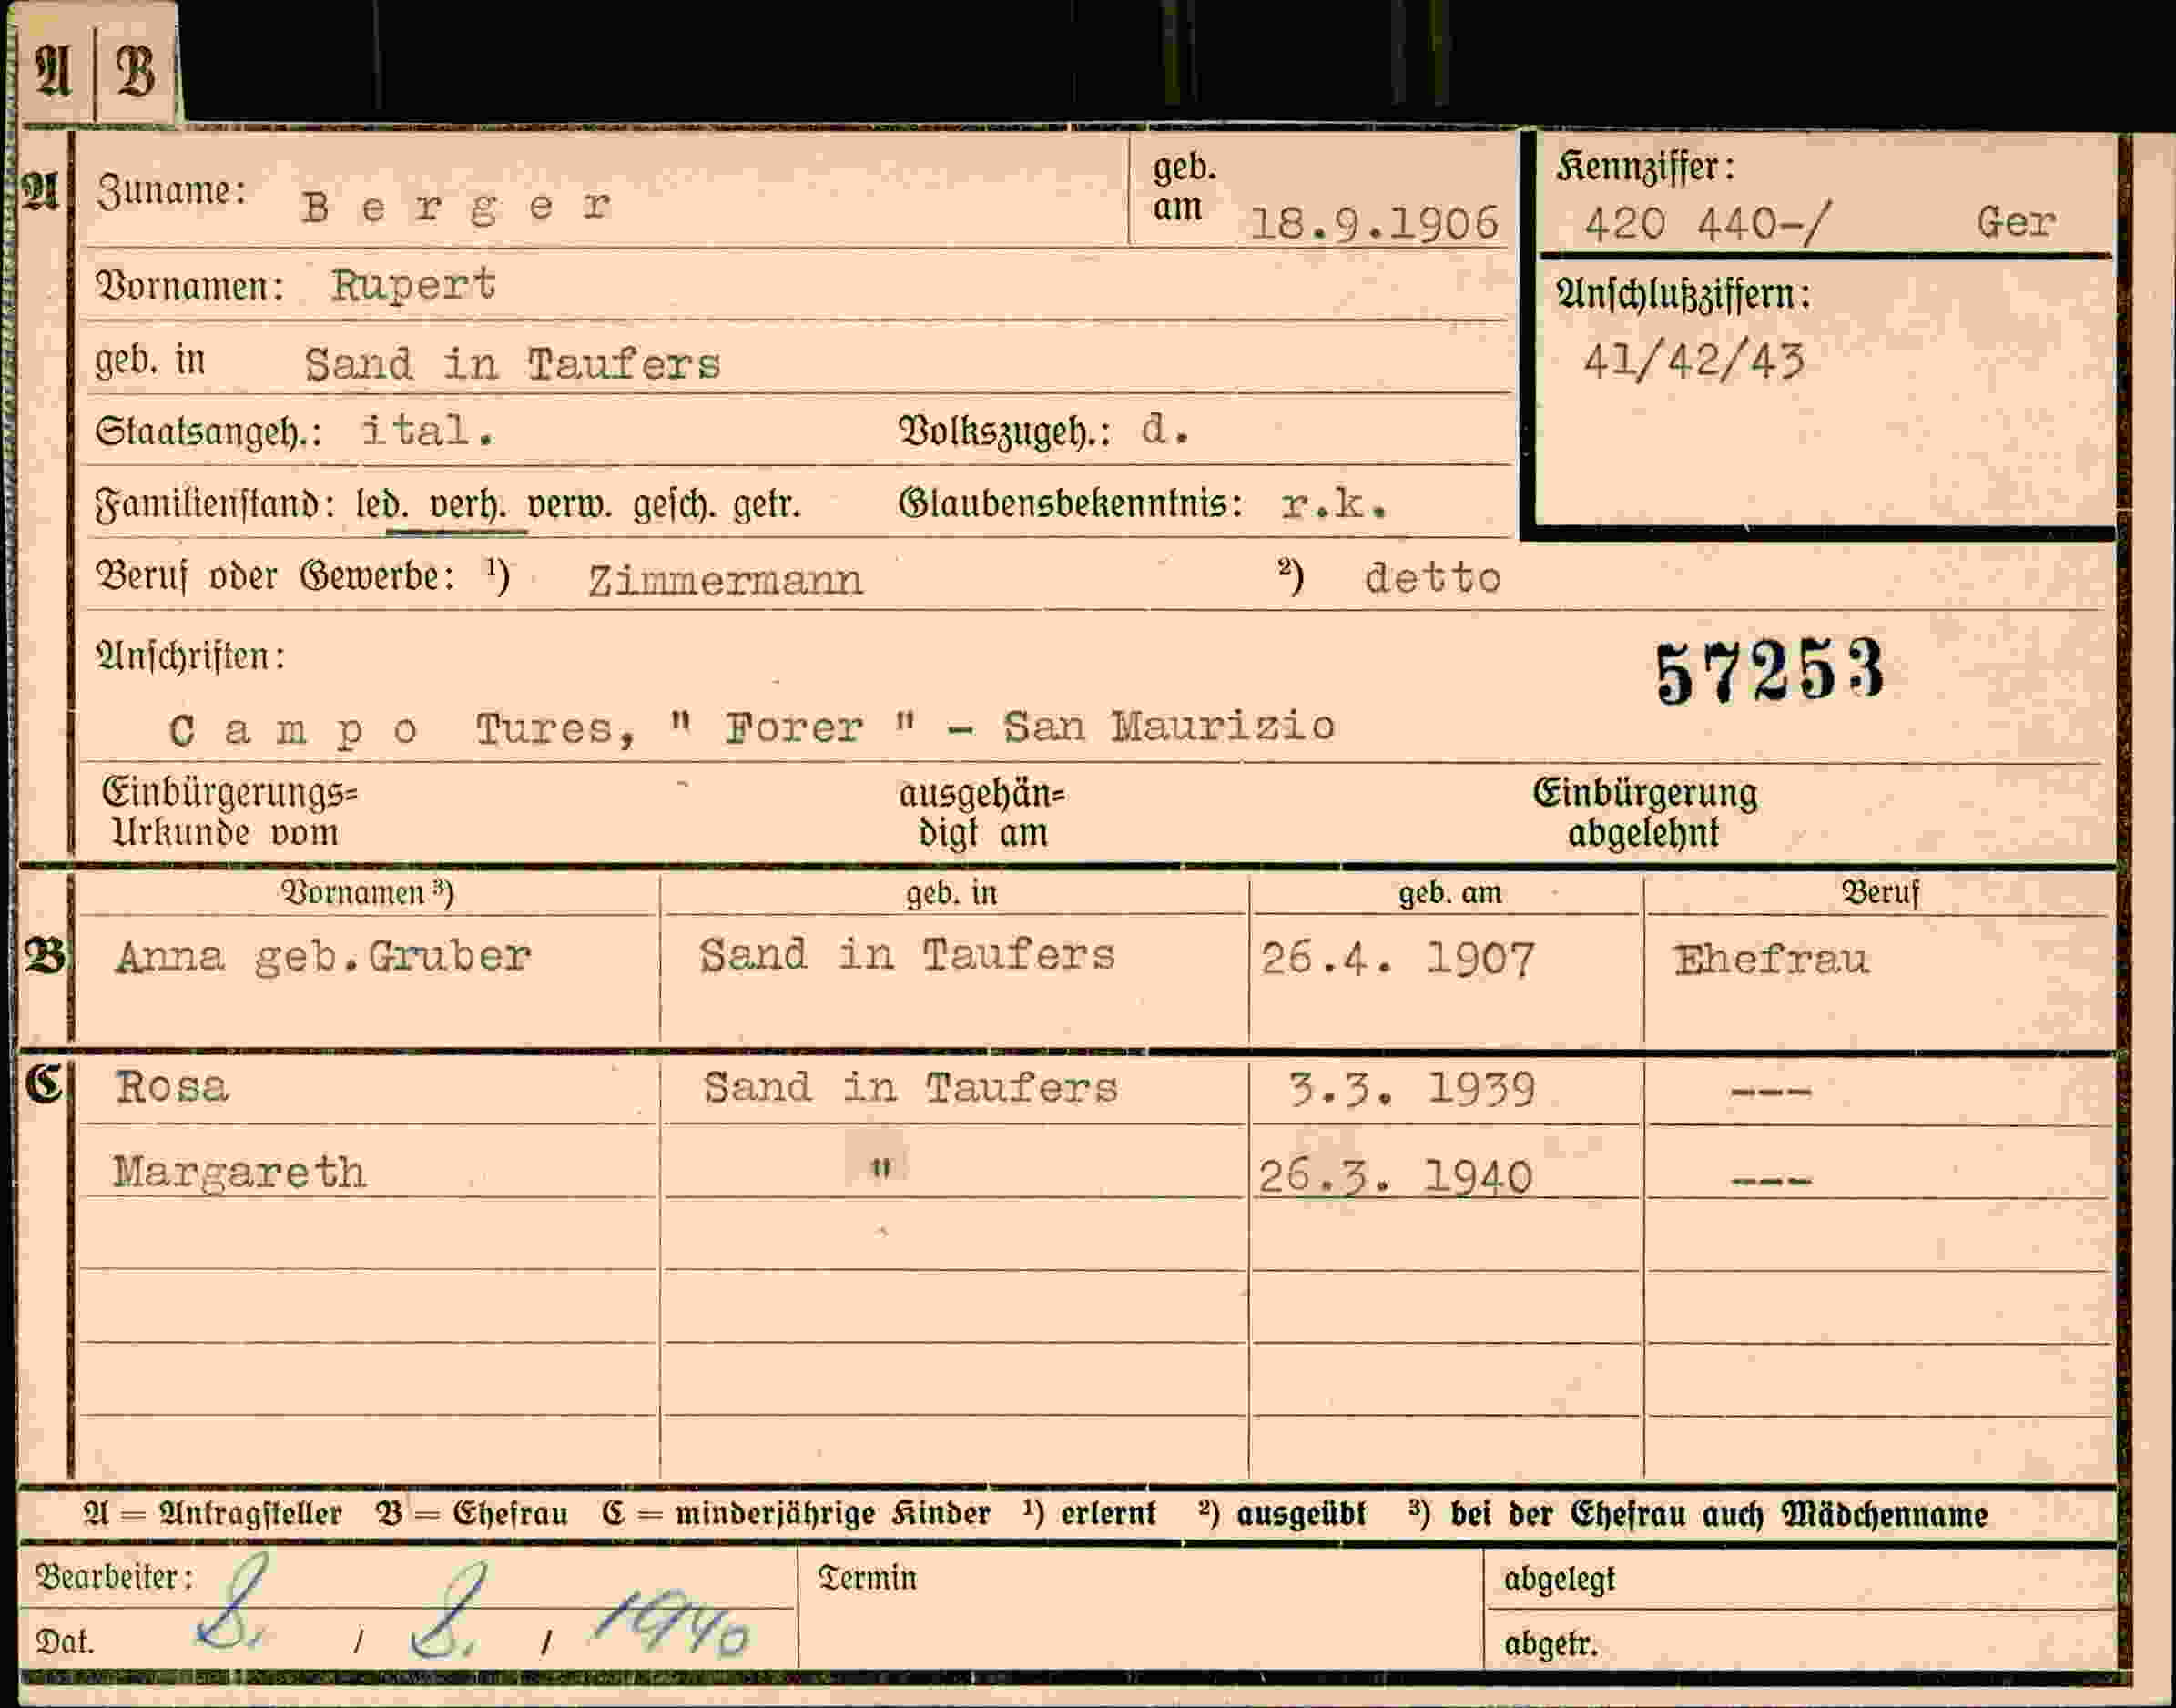 A | B
A Zuname: Berger geb. am 18.9.1906
Kennziffer:
420 440-/ Ger
Vornamen: Rupert
Anschlußziffern:
41/42/43
geb. in Sand in Taufers
Staatsangeh.: ital. Volkszugeh.: d.
Familienstand: led. verh. verw. gesch. getr. Glaubensbekenntnis: r.k.
Beruf oder Gewerbe: ¹) Zimmermann ²) detto
Anschriften:
57253
Campo Tures, " Forer " - San Maurizio
Einbürgerungs= ausgehän= Einbürgerung
Urkunde vom digt am abgelehnt
Vornamen ³) geb. in geb. am Beruf
B Anna geb.Gruber Sand in Taufers 26.4. 1907 Ehefrau
C Rosa Sand in Taufers 3.3. 1939 ---
Margareth " 26.3. 1940 ---
A = Antragsteller B = Ehefrau C = minderjährige Kinder ¹) erlernt ²) ausgeübt ³) bei der Ehefrau auch Mädchenname
Bearbeiter: Termin abgelegt
Dat. 8. / 8. / 1940 abgetr.